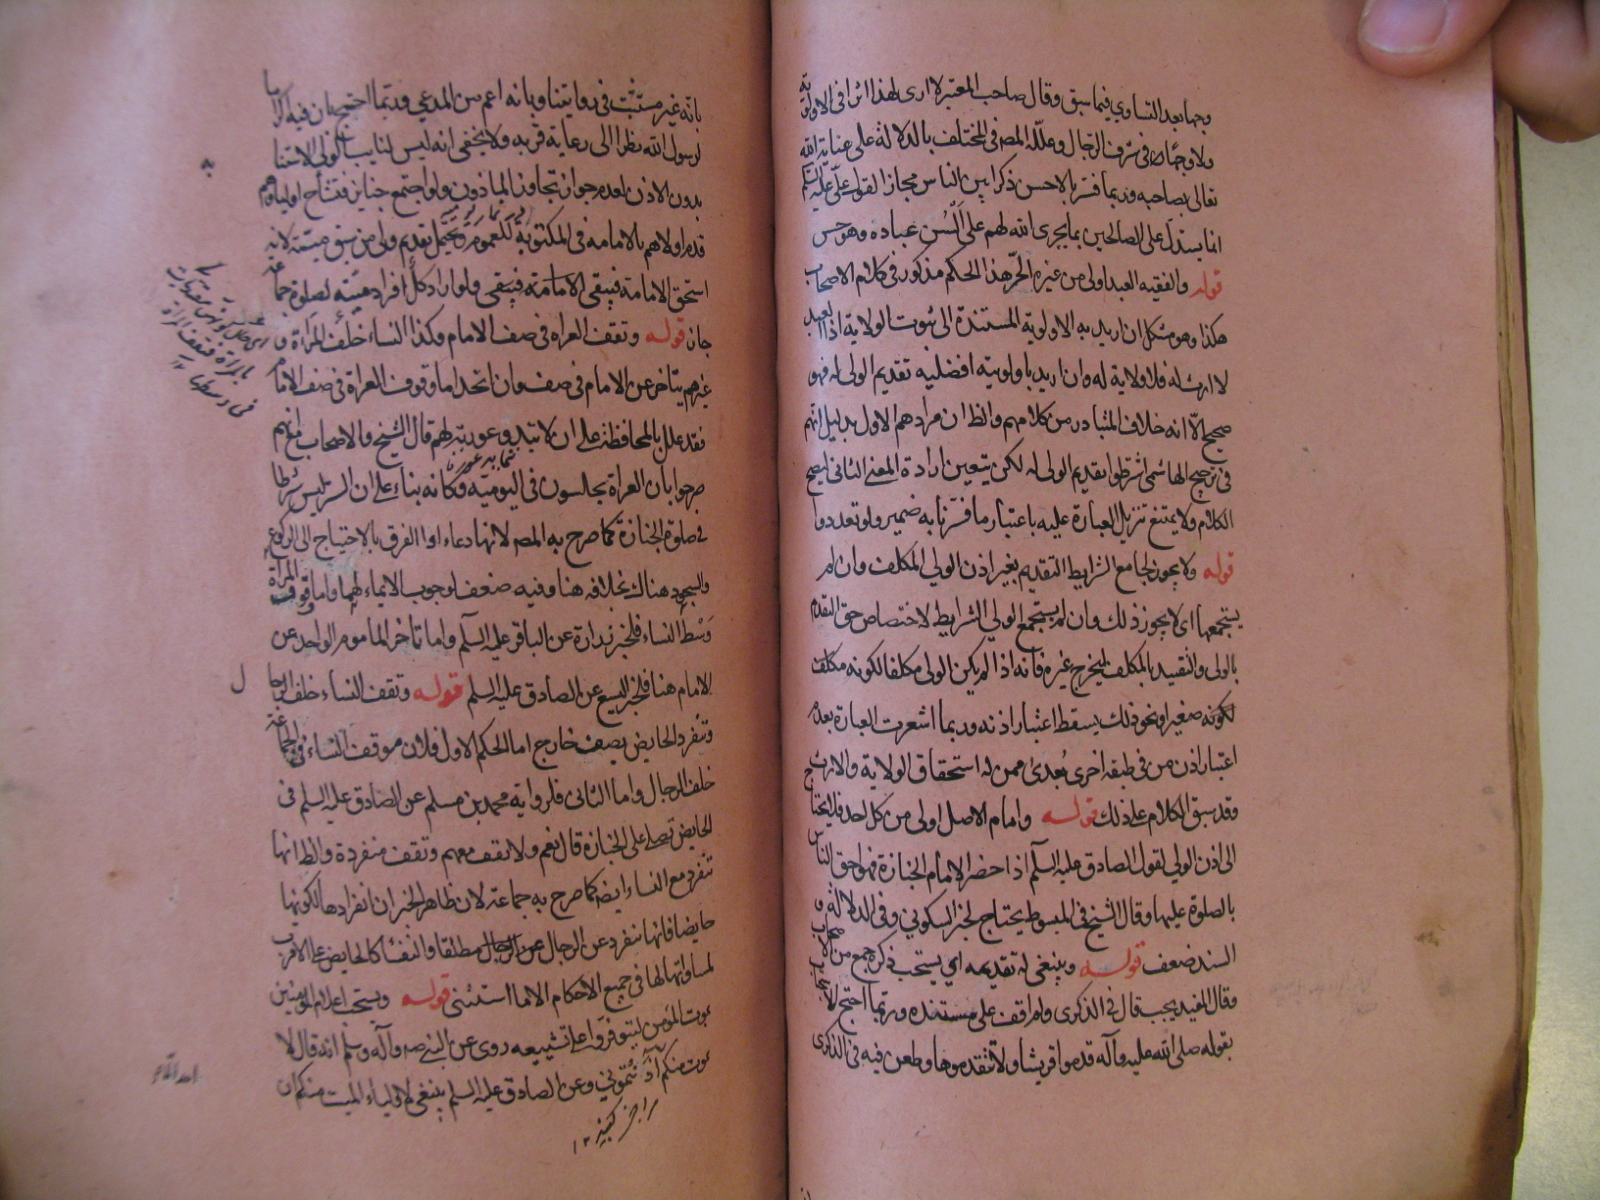 وجها بعد التساوي فيما سبق وقال صاحب المعتبر لا ارى لهذا اثرا فى الاولوية
ولا وجها في شرف الرجال وعلله المصه في المختلف بالدلالة على عناية الله
تعالى بصاحبه وربما فسر بالاحسن ذكرا بين الناس مجازا لقول علي عليه السلم
انما يستدل على الصالحين بما يجرى الله لهم على السن عباده وهو حسن
قوله والفقيه العبد اولى من غيره الحر هذا الحكم مذكور في كلام الاصحاب
هكذا وهو مشكل ان اريد به الاولوية المستندة الى ثبوت الولاية اذ العبد
لا ارث له فلا ولاية له وان اريد باولويته افضليه تقديم الولى له فهو
صحيح الا انه خلاف المتبادر من كلامهم والظ ان مرادهم الاول بدليل انهم
في ترجيح الهاشمى اشترطوا تقديم الولى له لكن يتعين ارادة المعنى الثانى ليصح
الكلام ولا يمتنع تنزيل العبارة عليه باعتبار ما فسرنا به ضمير ولو تعددوا
قوله ولا يجوز لجامع الشرايط التقديم بغير اذن الولي المكلف وان لم
يستجمعها اى لا يجوز ذلك وان لم يستجمع الولي الشرايط لاختصاص حق التقدم
بالولى والتقييد بالمكلف ليخرج غيره فانه اذا لم يكن الولى مكلفا لكونه مكلف
لكونه صغيرا ونحو ذلك يسقط اعتبار اذنه وربما اشعرت العبارة بعدم
اعتبار اذن من في طبقه اخرى بعدى ممن له استحقاق الولاية والارث
وقد سبق الكلام على ذلك قوله وامام الاصل اولى من كل احد فلا يحتاج
الى اذن الولي لقول الصادق عليه السلم اذا حضر الامام الجنازة فهو احق الناس
بالصلوة عليها وقال الشيخ في المبسوط يحتاج لخبر السكوني وفى الدلالة و
السند ضعف قوله وينبغى له تقديمه اي يستحب ذكره جمع من الاصحاب
وقال المفيد يجب قال في الذكرى ولم اقف على مستنده وربما احتج للايجاب
بقوله صلى الله عليه وآله قدموا قريشا ولا تقدموها وطعن فيه فى الذكرى
بانه غير مستثبت في روايتنا وبانه اعم من المدعي وربما احتج بان فيه اكراما
لرسول الله نظرا الى رعاية قربه ولا يخفى انه ليس لنايب الولى الاستنابة
بدون الاذن لعدم جواز تجاوز الماذون ولو اجتمع جنايز فتشاح اولياؤهم
قدم اولاهم بالامامه في المكتوبة لعموم ويحتمل تقديم ولى من سبق ميته لانه
استحق الامامة فيبقى ولو اراد كل افراد ميته لصلوة جماعة
جاز قوله وتقف العراه في صف الامام وكذا النساء خلف المراة و
غيرهم يتاخر عن الامام في صف وان اتحد اما وقوف العراة في صف الامام
فقد علل بالمحافظة على ان لا تبدو عورتهم قال الشيخ والاصحاب مع انهم
صرحوا بان العراة يجلسون في اليومية وكانه بناء على ان الستر ليس شرطا
في صلوة الجنازة كما صرح به المصه لانها دعاء او الفرق بالاحتياج الى الركوع
والسجود هناك بخلافه هنا وفيه ضعف لوجوب الايماء لهما واما وقوف المراة
وسط النساء فلخبر زرارة عن الباقر عليه السلم واما تاخر الماموم الواحد عن
الامام هنا فلخبر اليسع عن الصادق عليه السلم قوله وتقف النساء خلف الرجال
وتنفرد الحايض بصف خارج اما الحكم الاول فلان موقف النساء في الجماعة
خلف الرجال واما الثانى فلرواية محمد بن مسلم عن الصادق عليه السلم فى
الحايض تصلي على الجنازة قال نعم ولا تقف معهم وتقف منفردة والظ انها
تنفرد مع النساء ايضا كما صرح به جماعة لان ظاهر الخبر ان انفرادها لكونها
حايضا فانها تنفرد عن الرجال مطلقا والنفسا كالحايض على الاقرب
لمساواتها لها في جميع الاحكام الا ما استثنى قوله ويستحب اعلام المؤمنين
بموت المؤمن ليتوفروا على تشييعه روى عن النبي صه وآله وسلم انه قال لا
يموت منكم الا آذنتموني وعن الصادق عليه السلم ينبغي لاولياء الميت منكم ان